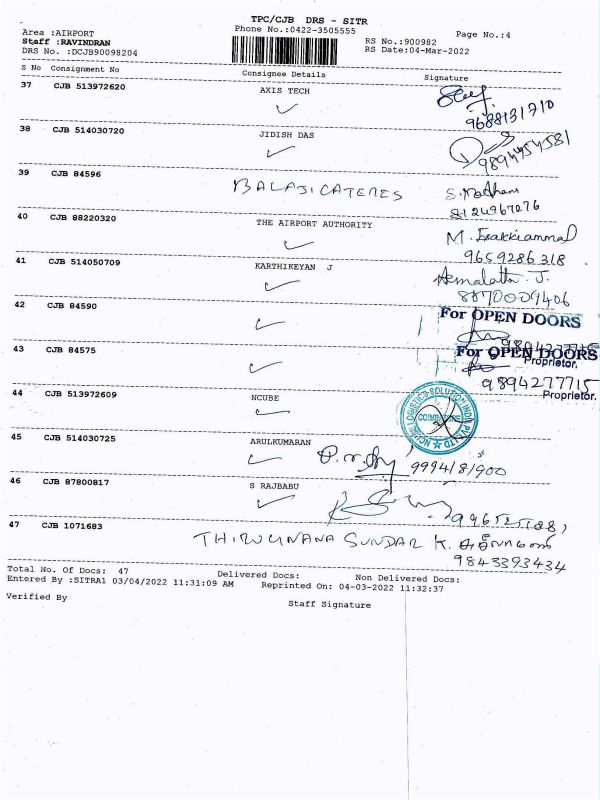 TPC/CJB DRS - SITR
Area :AIRPORT
Phone No.:0422-3505555
Page No.:4
Staff :RAVINDRAN
RS No.:900982
DRS No. :DCJB90098204
RS Date:04-Mar-2022
S No Consignment No
Consignee Details
Signature
37 CJB 513972620 AXIS TECH
9688131710
38 CJB 514030720 JIDISH DAS
9894454581
39 CJB 84596 BALAJI CATERES S. Madhani
8124967076
40 CJB 88220320 THE AIRPORT AUTHORITY M. Esakkiammal
9659286318
41 CJB 514050709 KARTHIKEYAN J Hemalatha J.
8870009406
42 CJB 84590 For OPEN DOORS
9894277715
Proprietor.
43 CJB 84575 For OPEN DOORS
9894277715
Proprietor.
44 CJB 513972609 NCUBE
LOGISTICS SOLUTION INDIA PVT LTD
45 CJB 514030725 ARULKUMARAN
9994181900
46 CJB 87800817 S RAJBABU
47 CJB 1071683 THIRUGNANA SUNDAR K.
9843393434
Total No. Of Docs: 47 Delivered Docs: Non Delivered Docs:
Entered By :SITRA1 03/04/2022 11:31:09 AM Reprinted On: 04-03-2022 11:32:37
Verified By
Staff Signature